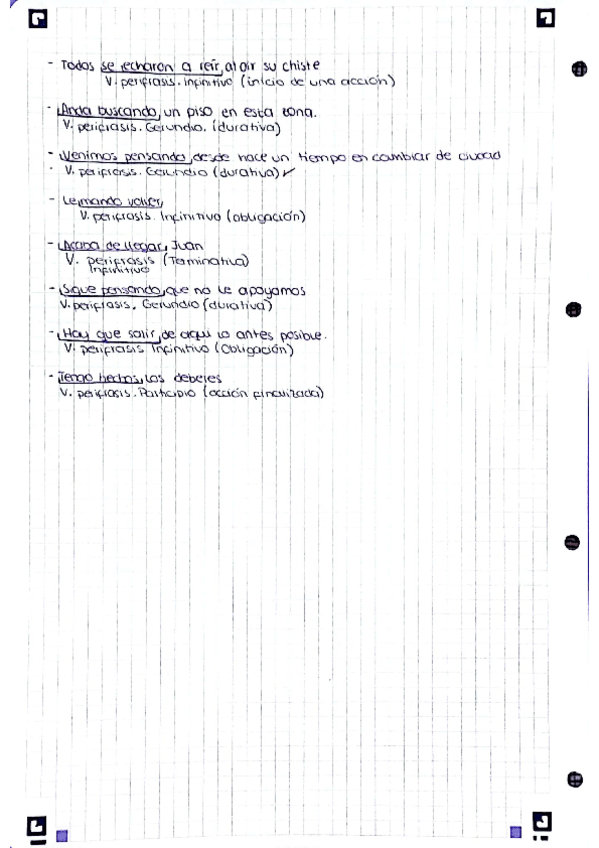 - Todos se echaron a reír, al oír su chiste
V. perífrasis. Infinitivo (inicio de una acción)
- Anda buscando, un piso en esta zona.
V. perífrasis. Gerundio. (durativa)
- Venimos pensando, desde hace un tiempo en cambiar de ciudad
V. perífrasis. Gerundio (durativa) ✓
- Le mando volver,
V. perífrasis. Infinitivo (obligación)
- Acaba de llegar, Juan
V. perífrasis (Terminativa)
Infinitivo
- Sigue pensando, que no le apoyamos
V. perífrasis. Gerundio (durativa)
- Hay que salir, de aquí lo antes posible.
V. perífrasis Infinitivo (Obligación)
- Tengo hechos, los deberes
V. perífrasis. Participio (acción finalizada)